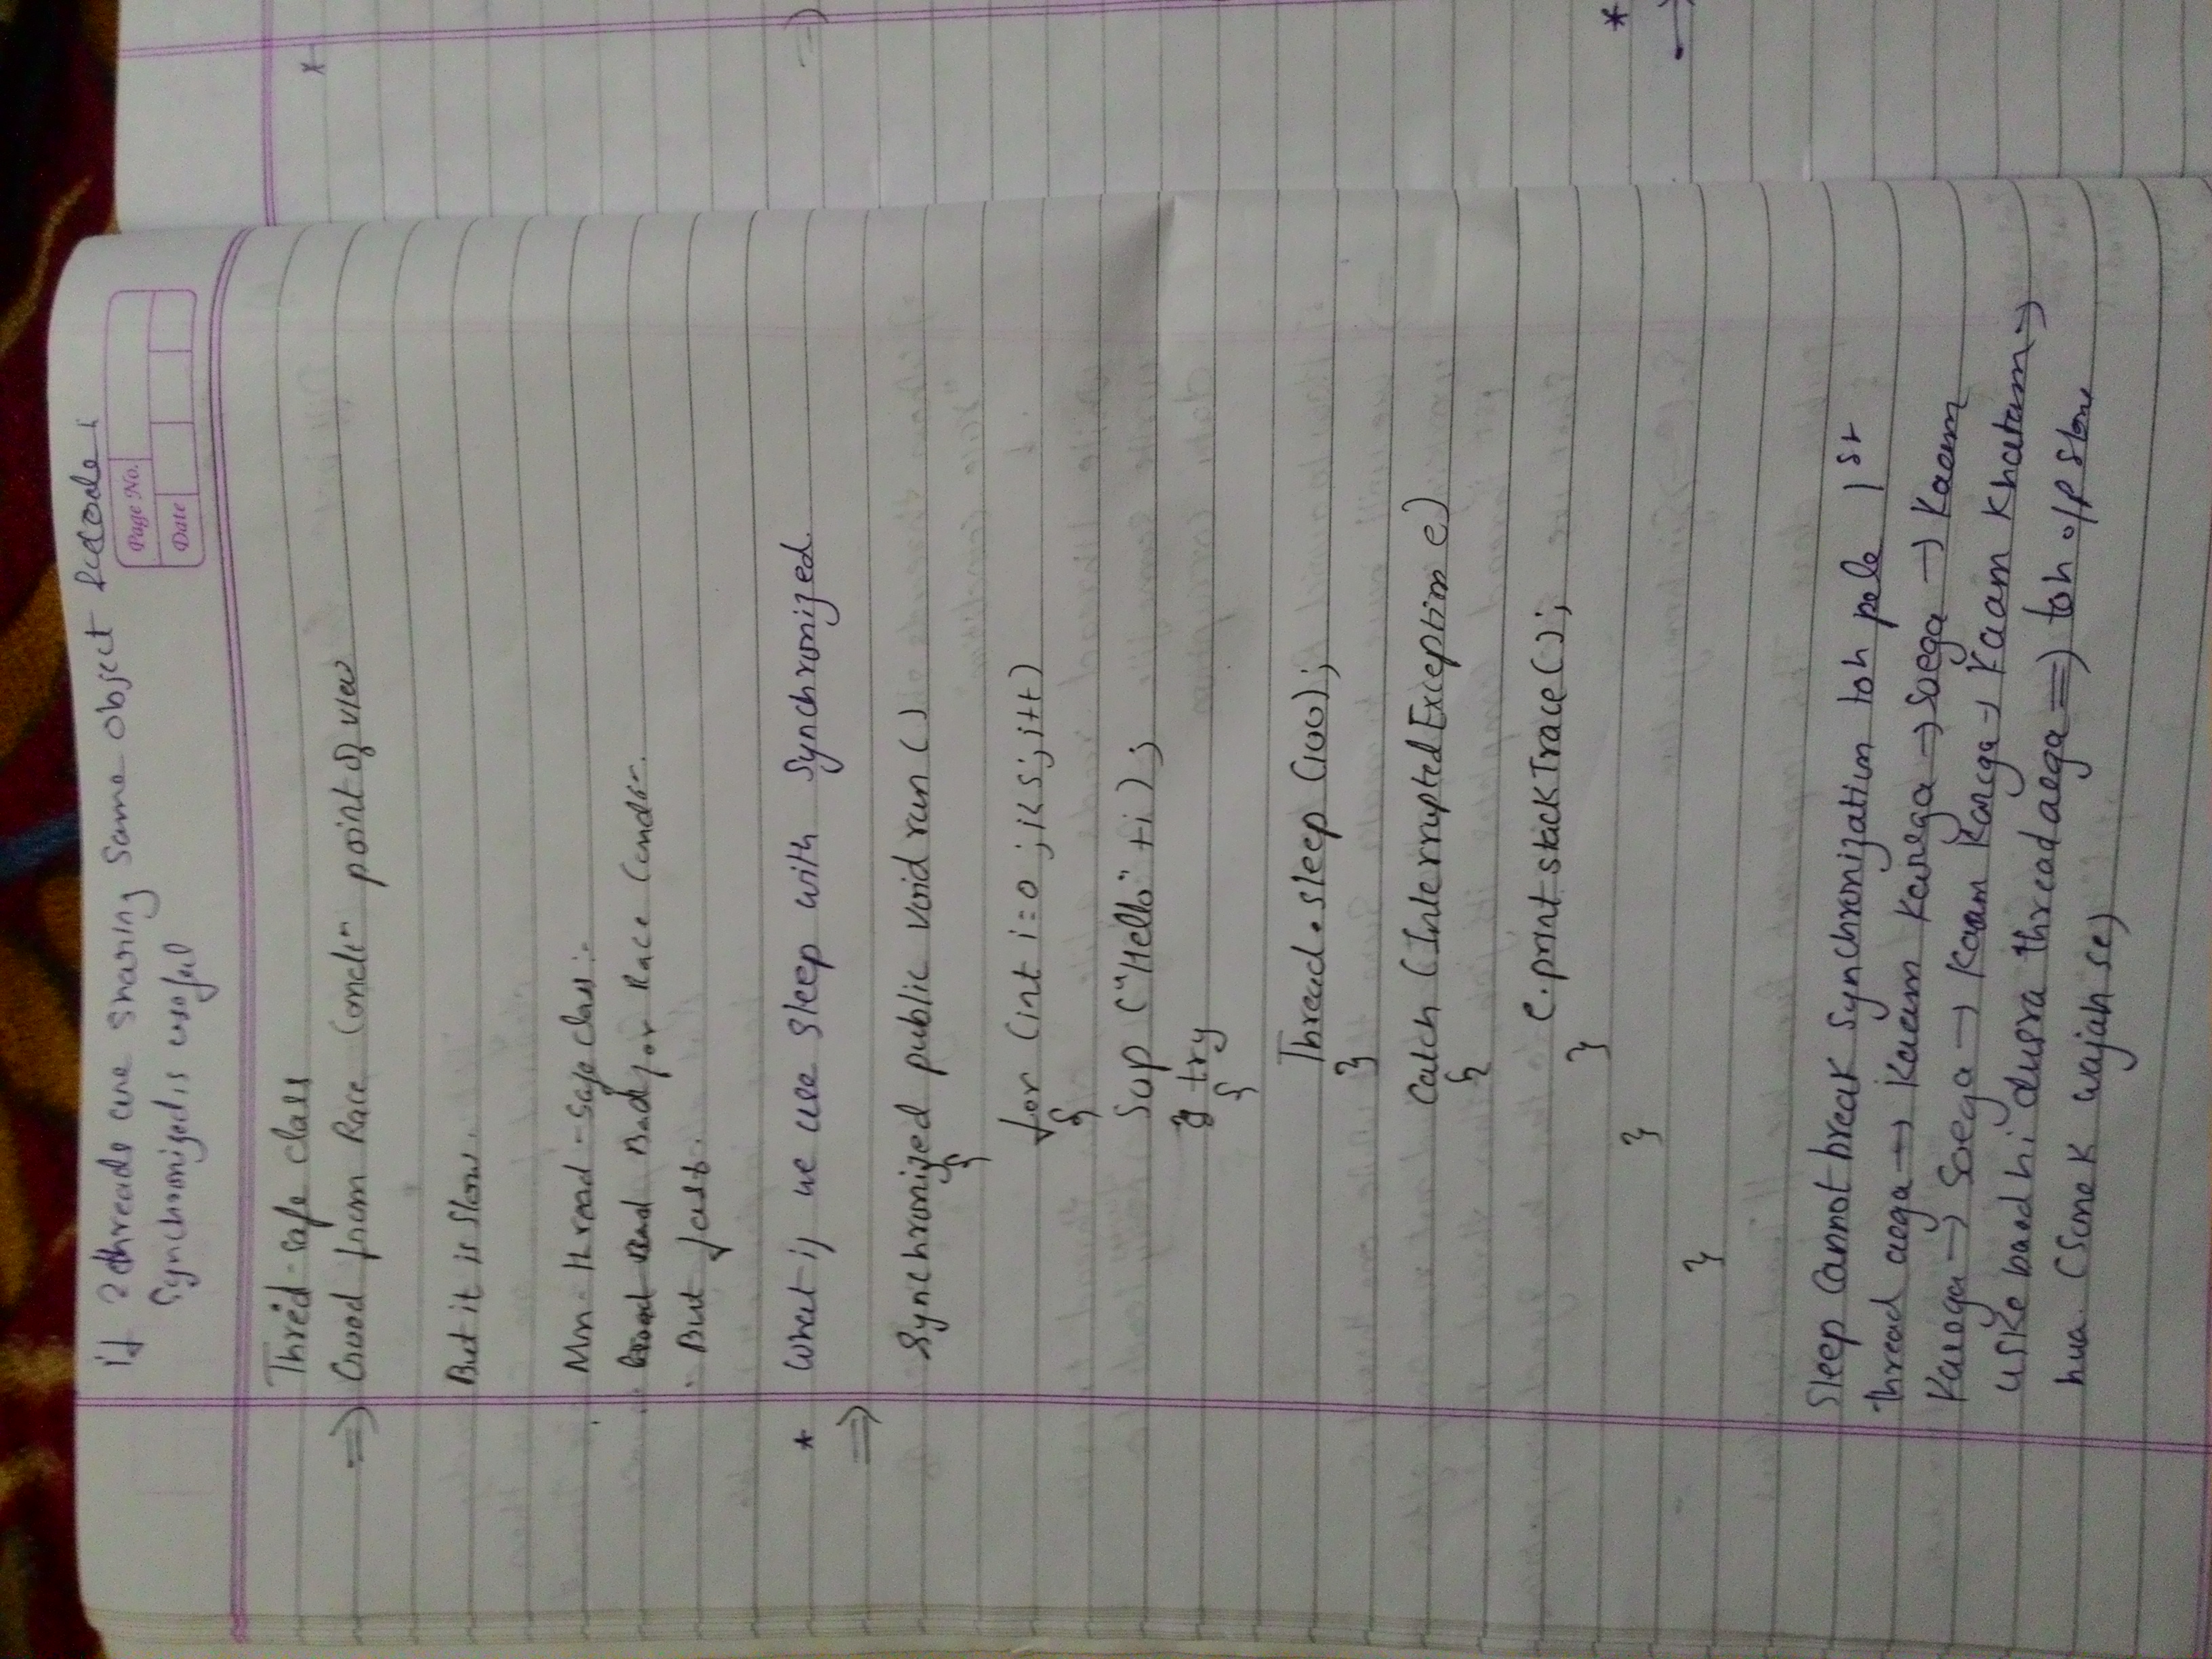 if 2 threads are sharing same object & code
Synchronized is useful
Page No.
Date
Thred-safe class
=> Good from Race Condⁿ point of view
But it is slow.
Non-thread-safe class:-
Bad for Race Condⁿ.
But fast.
* What if we use sleep with synchronized.
=>
Synchronized public void run ()
{
for (int i=0 ; i<5; i++)
{
Sop ("Hello" +i) ;
try
{
Thread.sleep (100);
}
Catch (InterruptedException e)
{
e.print stackTrace();
}
}
}
Sleep Cannot break Synchronization toh pele 1st
thread aega → Kaam Karega → Soega → Kaam
Karega → Soega → Kaam Karega → Kaam Khatam →
uske baad hi dusra thread aega => toh o/p slow
hua. (Sone K wajah se)